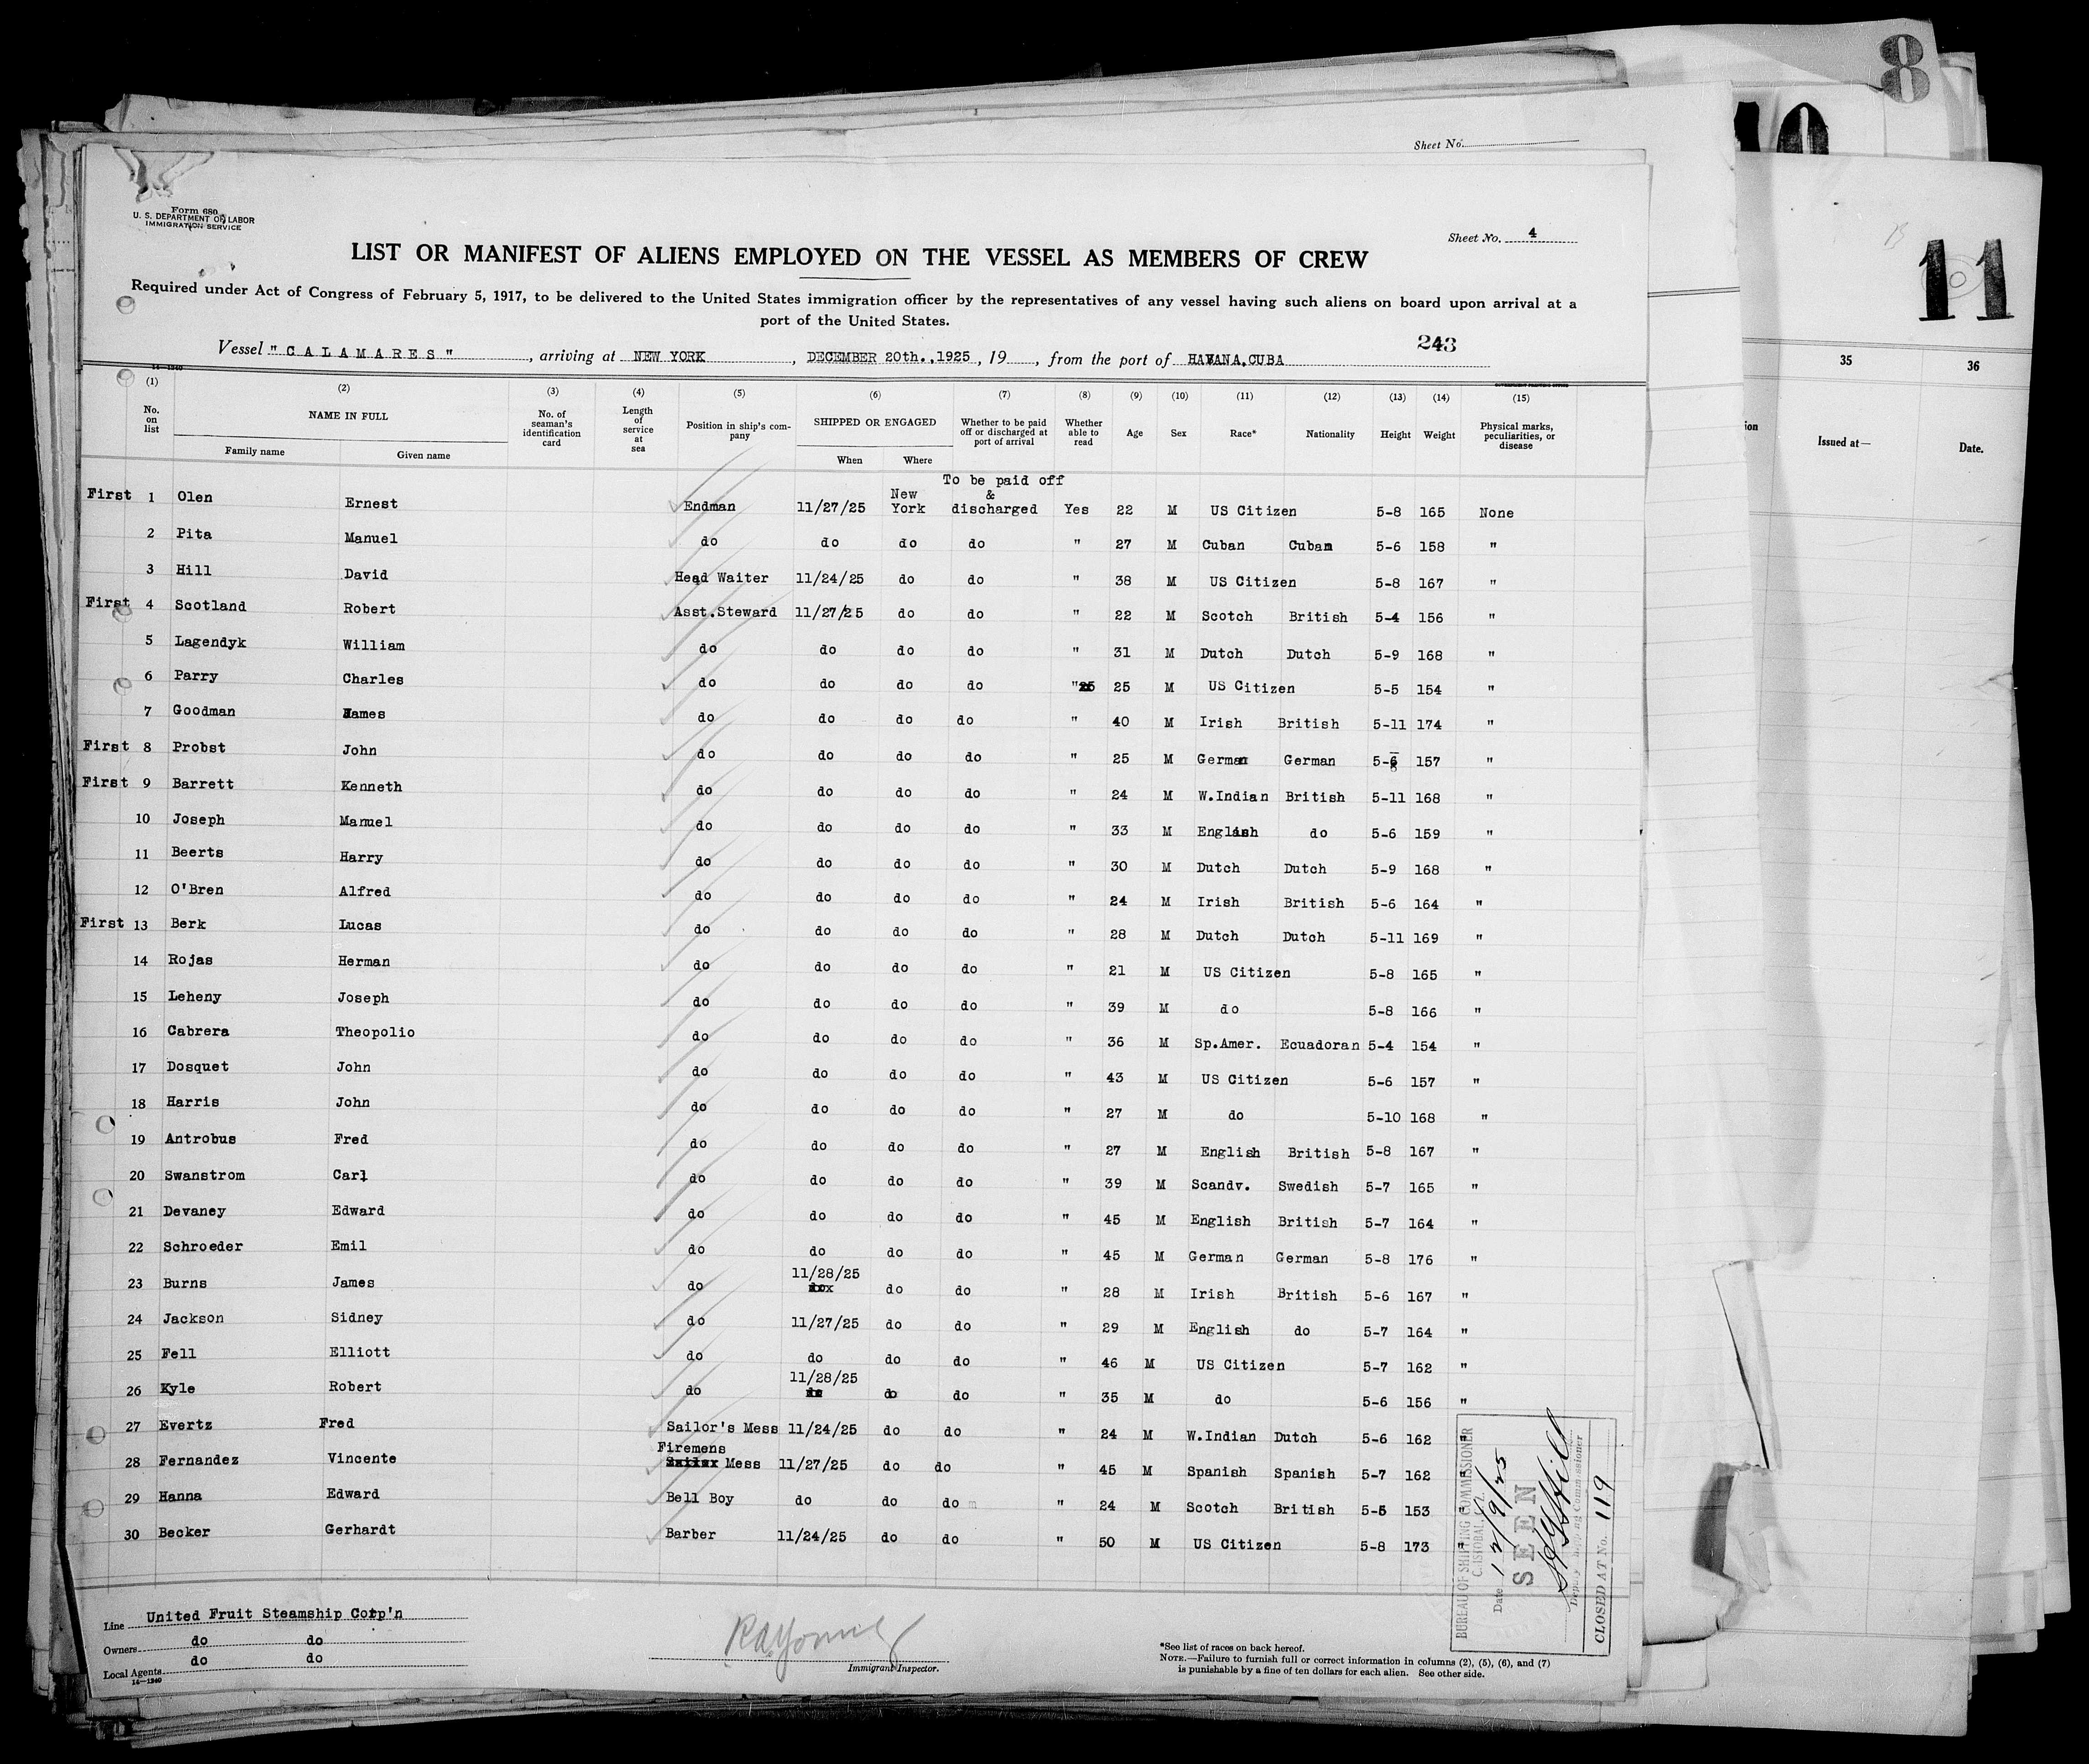 8
10
11
Sheet No.
35
36
ion
Issued at—
Date.
Form 680
U. S. DEPARTMENT OF LABOR
IMMIGRATION SERVICE
Sheet No. 4
LIST OR MANIFEST OF ALIENS EMPLOYED ON THE VESSEL AS MEMBERS OF CREW
Required under Act of Congress of February 5, 1917, to be delivered to the United States immigration officer by the representatives of any vessel having such aliens on board upon arrival at a
port of the United States.
243
Vessel "CALAMARES", arriving at NEW YORK, DECEMBER 20th.,1925, 19, from the port of HAVANA,CUBA
14—1240
(1) (2) (3) (4) (5) (6) (7) (8) (9) (10) (11) (12) (13) (14) (15)
No. on list NAME IN FULL No. of seaman's identification card Length of service at sea Position in ship's company SHIPPED OR ENGAGED Whether to be paid off or discharged at port of arrival Whether able to read Age Sex Race* Nationality Height Weight Physical marks, peculiarities, or disease
Family name Given name When Where
To be paid off
First 1 Olen Ernest Endman 11/27/25 New York & discharged Yes 22 M US Citizen 5-8 165 None
2 Pita Manuel do do do do " 27 M Cuban Cuban 5-6 158 "
3 Hill David Head Waiter 11/24/25 do do " 38 M US Citizen 5-8 167 "
First 4 Scotland Robert Asst.Steward 11/27/25 do do " 22 M Scotch British 5-4 156 "
5 Lagendyk William do do do do " 31 M Dutch Dutch 5-9 168 "
6 Parry Charles do do do do " 25 25 M US Citizen 5-5 154 "
7 Goodman James do do do do " 40 M Irish British 5-11 174 "
First 8 Probst John do do do do " 25 M German German 5-6 157 "
First 9 Barrett Kenneth do do do do " 24 M W.Indian British 5-11 168 "
10 Joseph Manuel do do do do " 33 M English do 5-6 159 "
11 Beerts Harry do do do do " 30 M Dutch Dutch 5-9 168 "
12 O'Bren Alfred do do do do " 24 M Irish British 5-6 164 "
First 13 Berk Lucas do do do do " 28 M Dutch Dutch 5-11 169 "
14 Rojas Herman do do do do " 21 M US Citizen 5-8 165 "
15 Leheny Joseph do do do do " 39 M do 5-8 166 "
16 Cabrera Theopolio do do do do " 36 M Sp.Amer. Ecuadoran 5-4 154 "
17 Dosquet John do do do do " 43 M US Citizen 5-6 157 "
18 Harris John do do do do " 27 M do 5-10 168 "
19 Antrobus Fred do do do do " 27 M English British 5-8 167 "
20 Swanstrom Carl do do do do " 39 M Scandv. Swedish 5-7 165 "
21 Devaney Edward do do do do " 45 M English British 5-7 164 "
22 Schroeder Emil do do do do " 45 M German German 5-8 176 "
23 Burns James do 11/28/25 do do " 28 M Irish British 5-6 167 "
24 Jackson Sidney do 11/27/25 do do " 29 M English do 5-7 164 "
25 Fell Elliott do do do do " 46 M US Citizen 5-7 162 "
26 Kyle Robert do 11/28/25 do do " 35 M do 5-6 156 "
27 Evertz Fred Sailor's Mess 11/24/25 do do " 24 M W.Indian Dutch 5-6 162 "
28 Fernandez Vincente Firemens Mess 11/27/25 do do " 45 M Spanish Spanish 5-7 162 "
29 Hanna Edward Bell Boy do do do " 24 M Scotch British 5-5 153
30 Becker Gerhardt Barber 11/24/25 do do " 50 M US Citizen 5-8 173 "
BUREAU OF SHIPPING COMMISSIONER
CRISTOBAL, C.Z.
Date 12/9/25
SEEN
Deputy Shipping Commissioner
CLOSED AT No. 119
Line United Fruit Steamship Corp'n
Owners do do
Local Agents do do
14—1240
Immigrant Inspector.
*See list of races on back hereof.
NOTE.—Failure to furnish full or correct information in columns (2), (5), (6), and (7)
is punishable by a fine of ten dollars for each alien. See other side.